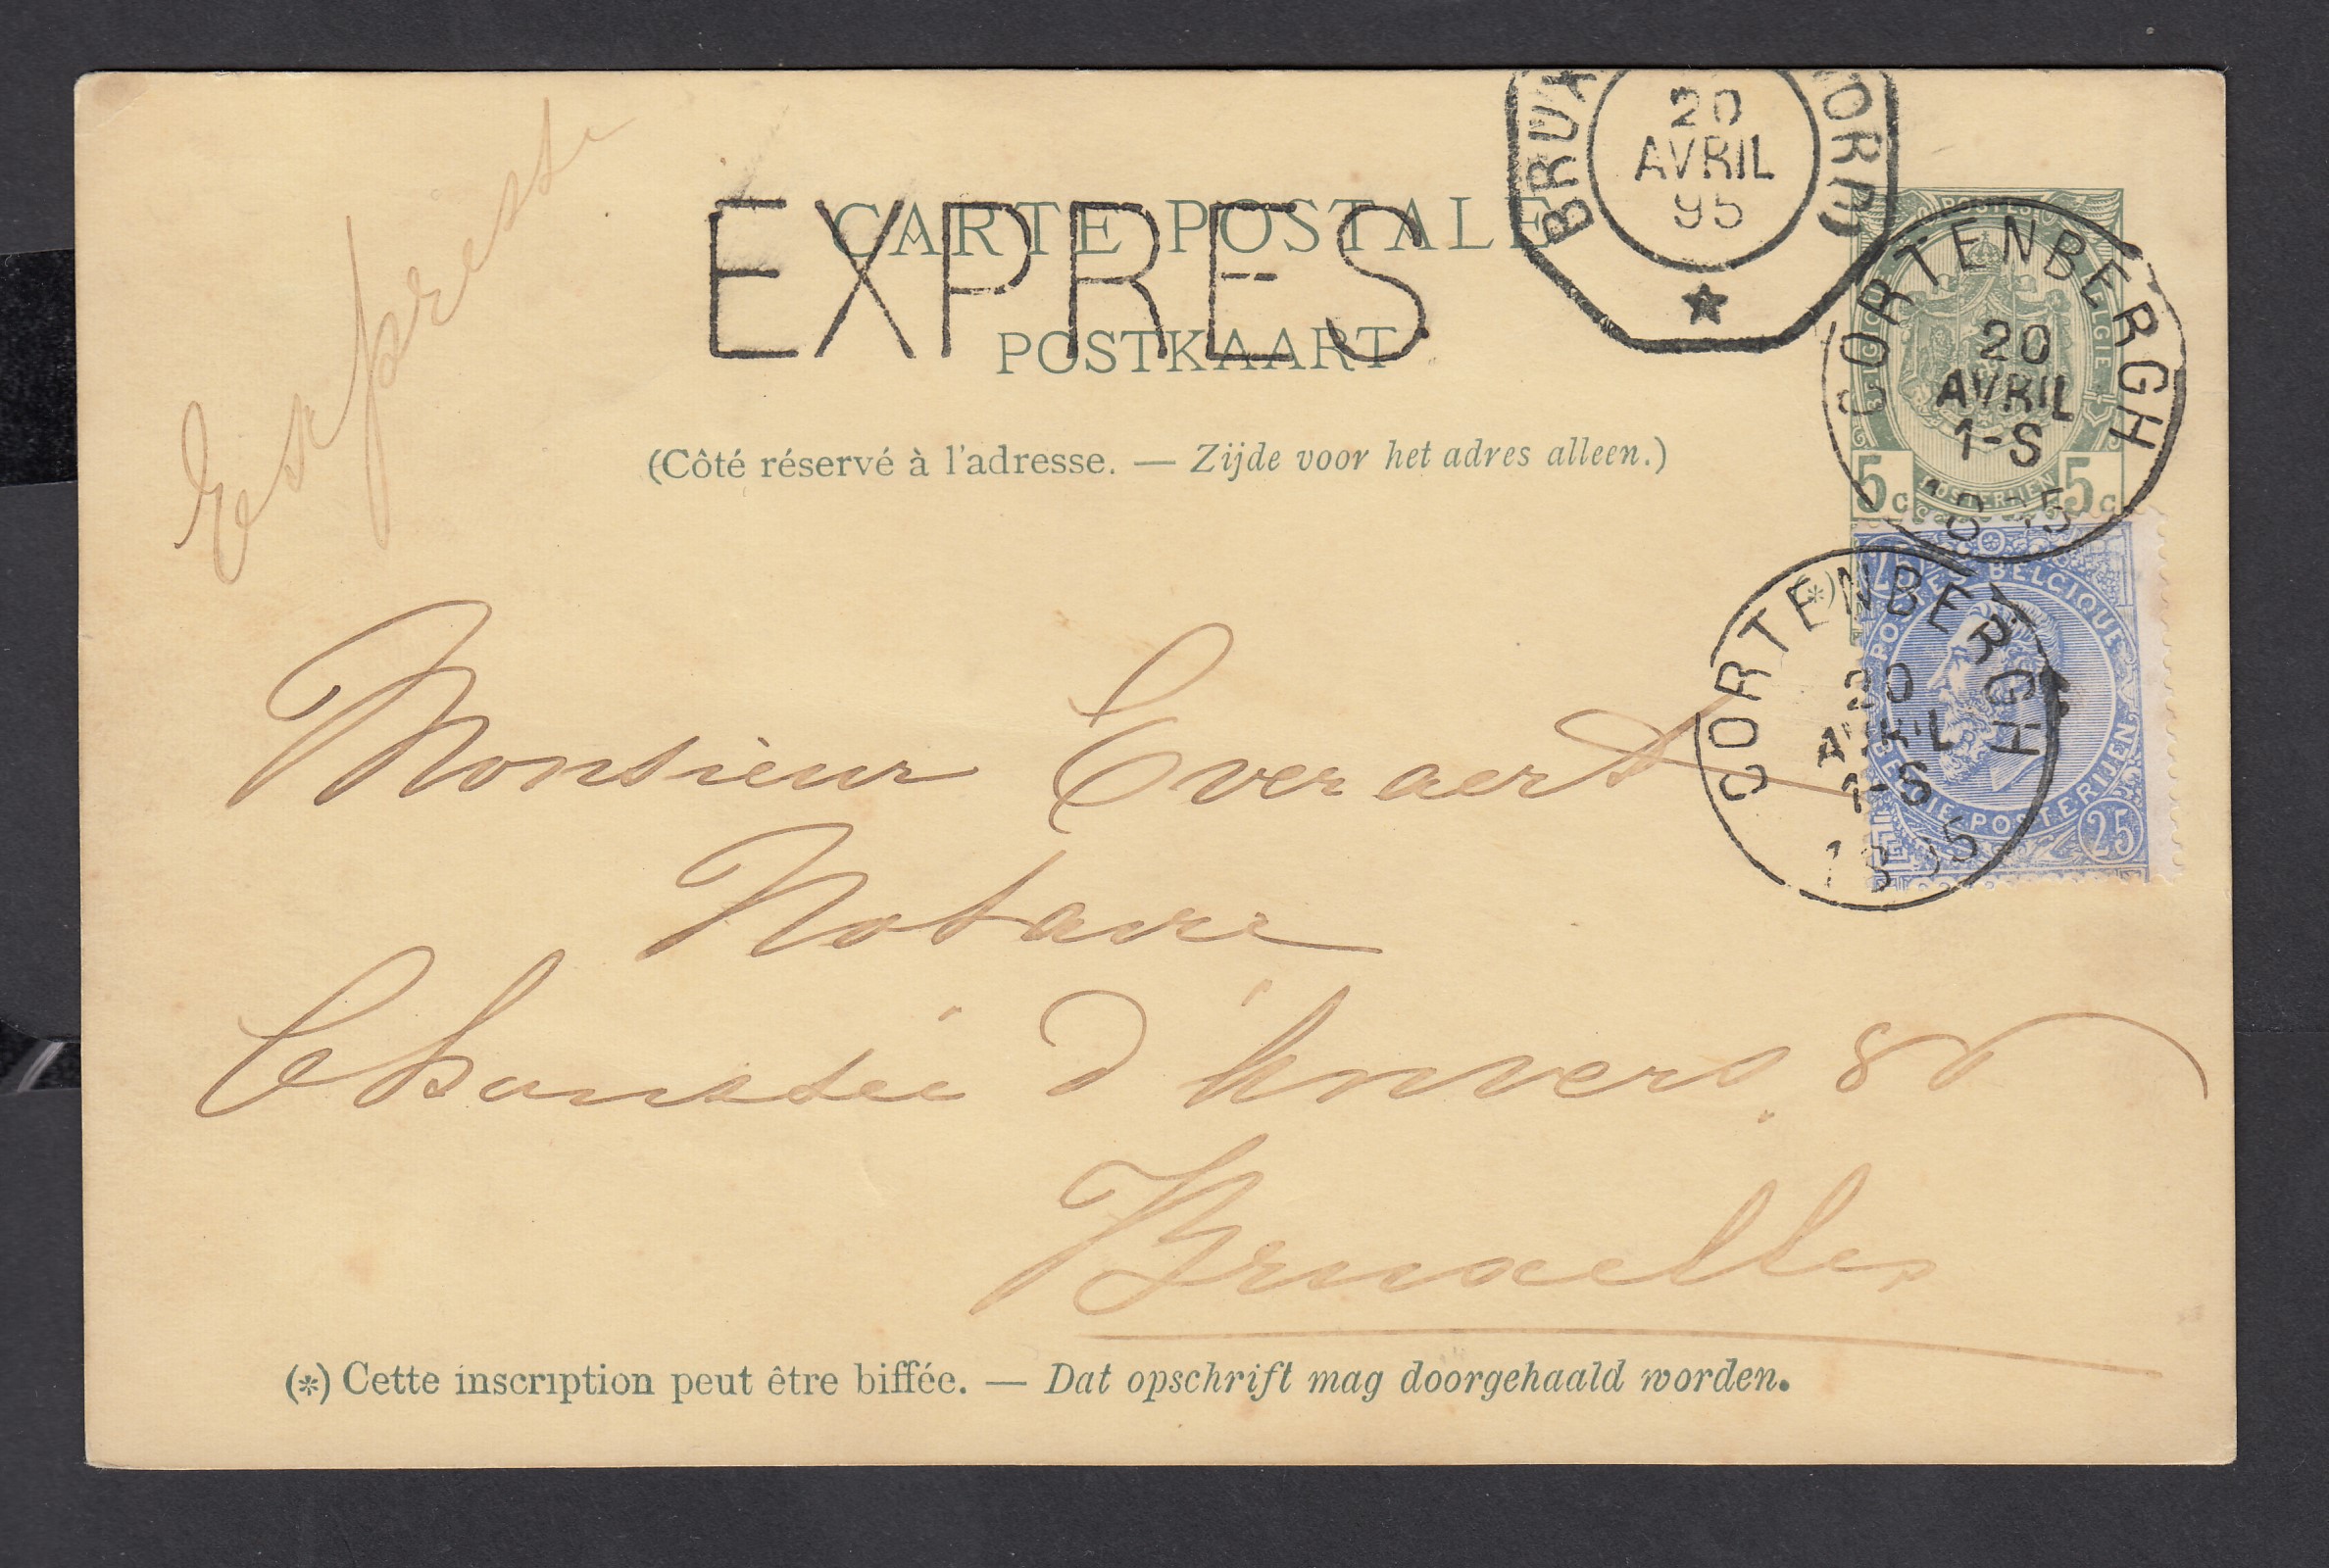 Expresse
BRUX
ORD)
20
AVRIL
95
CARTE POSTALE
EXPRES.
POSTKAART
(Côté réservé à l'adresse. — Zijde voor het adres alleen.)
CORTENBERGH
20
AVRIL
1-S
5c 5c
(*)
25
POSTES BELGIQUE
POSTERIJEN
25
CORTENBERGH
20
AVRIL
1-S
1895
Monsieur Everaert
Notaire
Chaussée d'Anvers. 8
Bruxelles
(*) Cette inscription peut être biffée. — Dat opschrift mag doorgehaald worden.